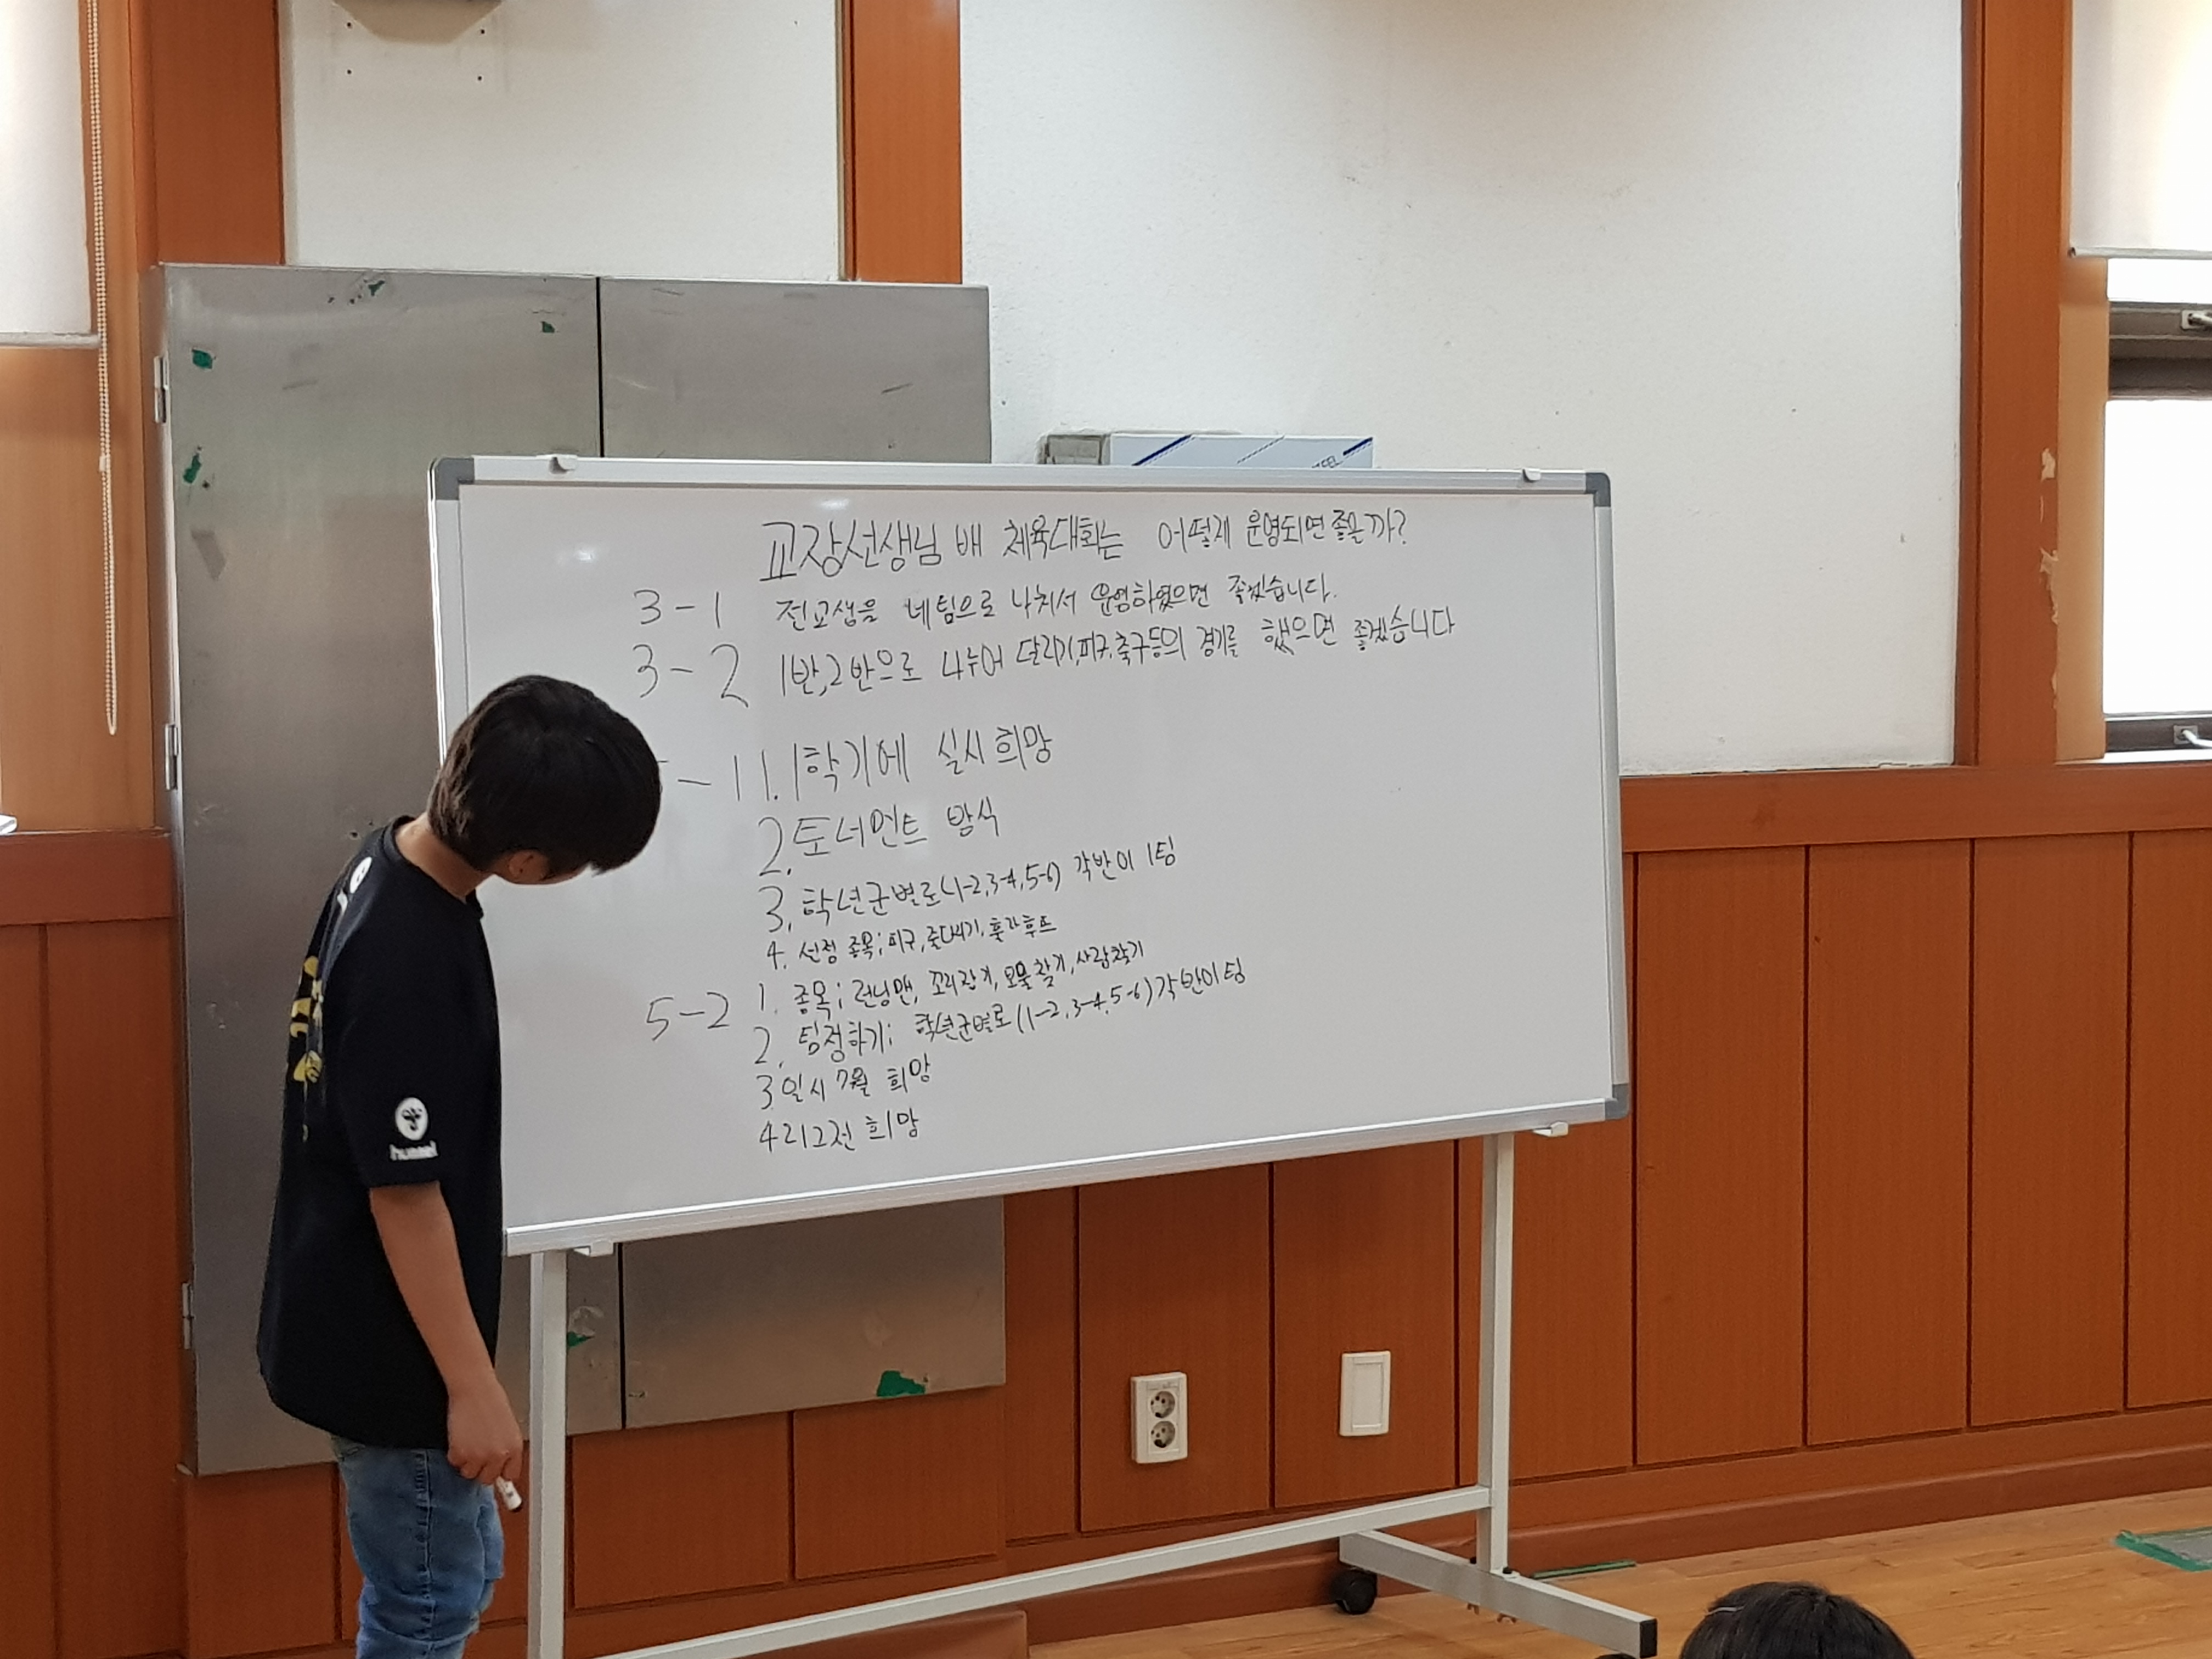 교장선생님 배 체육대회는 어떻게 운영되면 좋을까?
3-1 전교생을 네팀으로 나눠서 운영하였으면 좋겠습니다.
3-2 1반,2반으로 나누어 달리기,피구,축구등의 경기를 했으면 좋겠습니다
-1 1. 1학기에 실시 희망
2. 토너먼트 방식
3. 학년군별로(1-2,3-4,5-6) 각반이 1팀
4. 선정 종목; 피구, 줄다리기, 훌라후프
5-2 1. 종목; 런닝맨, 꼬리잡기, 보물찾기, 사람찾기
2. 팀정하기; 학년군별로(1-2,3-4,5-6)각반이팀
3.일시 7월 희망
4리그전 희망
hummel